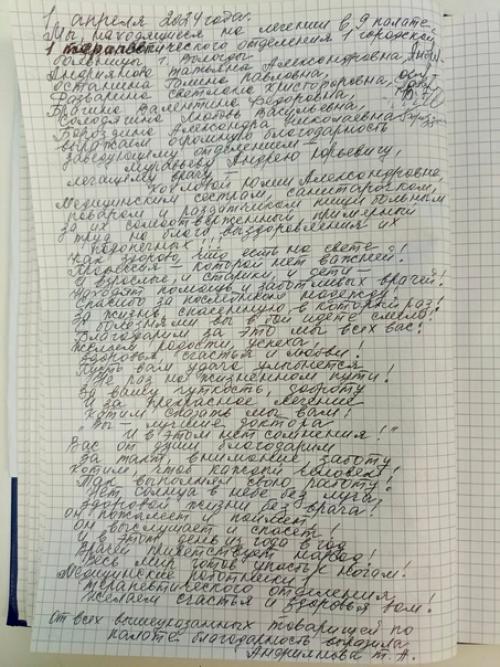 1 апреля 2024 года.
Мы, находящиеся на лечении в 9 палате
1 терапевтического отделения 1 городской
больницы г. Вологды
Андриянова Татьяна Александровна,
Останина Галина Павловна,
Разварина Светлана Христофоровна,
Брагина Валентина Федоровна,
Солодягина Любовь Васильевна,
Бороздина Александра Николаевна
выражаем огромную благодарность
заведующему отделением –
Муравьеву Андрею Юрьевичу,
лечащему врачу –
Юлии Александровне,
медицинским сестрам, санитарочкам,
поварам и раздатчикам пищи больным
за их самоотверженный примерный
труд на благо выздоровления их
подопечных!!!
Как здорово, что есть на свете
Профессия – которой нет важней!
И взрослые и старики, и дети –
Находят помощь и заботливых врачей!
Спасибо за последнюю надежду!
За жизнь, спасенную в который раз!
С болезнями вы в бой идете смело!
Благодарим за это мы всех вас!
Желаем радости, успеха,
Здоровья, счастья и любви!
Пусть вам удача улыбнется
Не раз на жизненном пути!
За вашу чуткость, доброту
И за прекрасное лечение
Хотим сказать мы вам!
"Вы – лучшие доктора
И в этом нет сомнения!"
Вас от души благодарим
За такт, внимание, заботу
Хотим, чтоб каждый человек
Так выполнял свою работу!
Нет солнца в небе без луча,
Здоровой жизни без врача!
Он пожалеет и поймет,
Он выслушает и спасет!
И в этот день из года в год
Врачей приветствует народ!
Весь мир готов упасть к ногам!
Медицинские работники 1
терапевтического отделения
Желаем счастья и здоровья вам!
От всех вышеуказанных товарищей по
палате благодарность выразила
Андриянова Т. А.